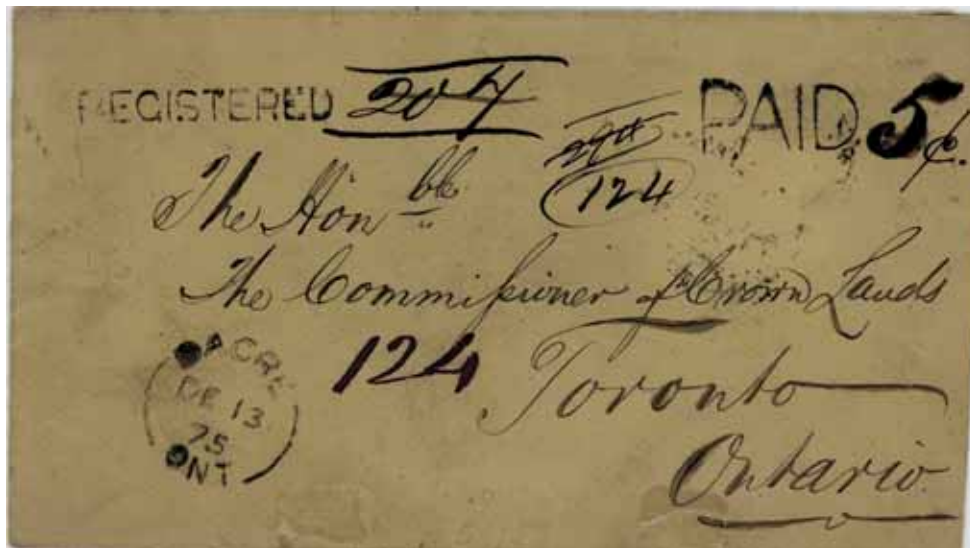 REGISTERED 207
PAID 5¢.
294
124
The Honble
The Commissioner of Crown Lands
124
Toronto
Ontario
DACRE
DE 13
75
ONT